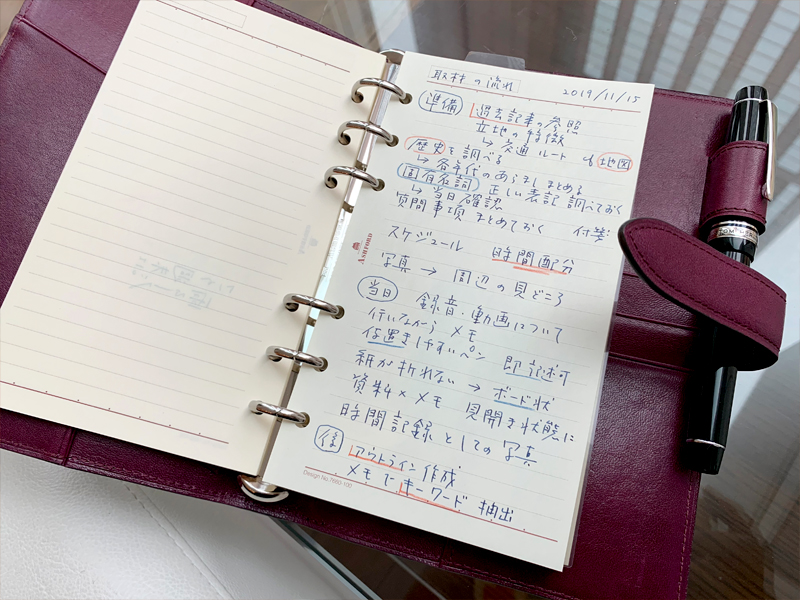 取材の流れ
2019/11/15
準備 過去記事の参照
立地の特徴
↳ 交通ルート 地図
歴史を調べる
↳ 各年代のあらましまとめる
固有名詞 正しい表記 調べておく
↳ 当日確認
質問事項 まとめておく 付箋
スケジュール 時間配分
写真 → 周辺の見どころ
当日 録音・動画について
行いながら メモ
仮置きしやすいペン 即記述可
紙が折れない → ボード状
資料×メモ 見開き状態に
時間記録としての写真
後 アウトライン作成
メモで キーワード 抽出
ASHFORD